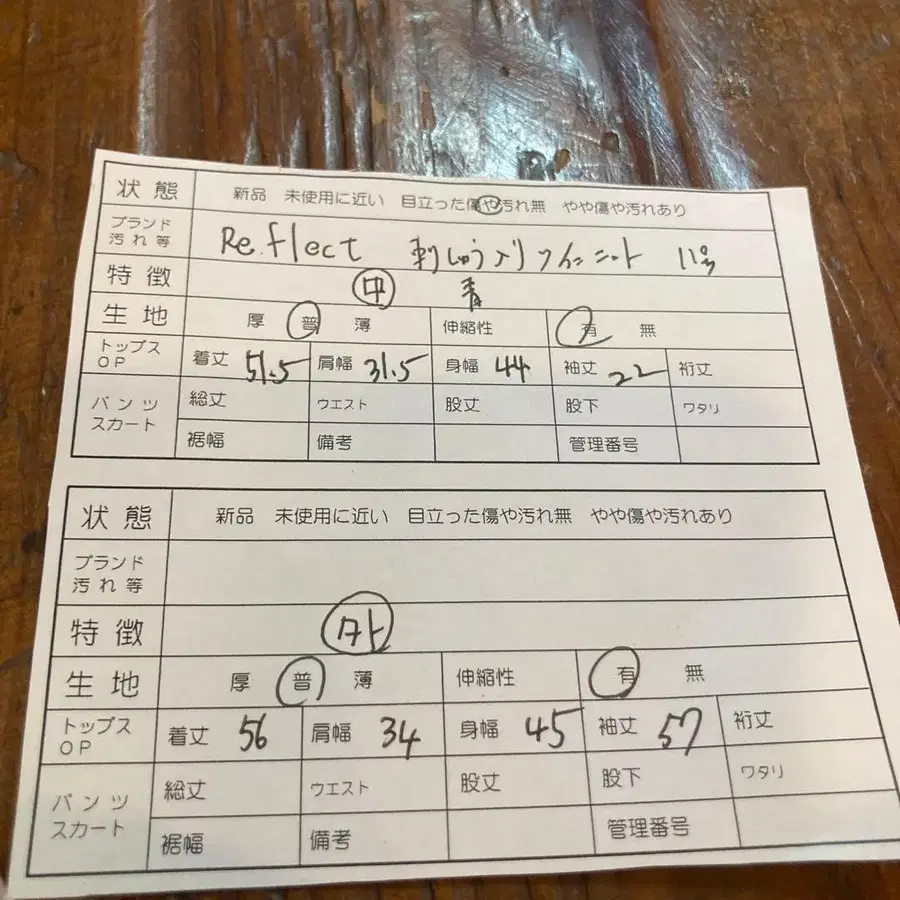 状態 新品 未使用に近い 目立った傷や汚れ無 やや傷や汚れあり
ブランド 汚れ等 Re.flect 刺しゅう入り ツインニット 11号
特徴 中 青
生地 厚 普 薄 伸縮性 有 無
トップス OP 着丈 51.5 肩幅 31.5 身幅 44 袖丈 22 裄丈
パンツ スカート 総丈 ウエスト 股丈 股下 ワタリ
裾幅 備考 管理番号
状態 新品 未使用に近い 目立った傷や汚れ無 やや傷や汚れあり
ブランド 汚れ等
特徴 外
生地 厚 普 薄 伸縮性 有 無
トップス OP 着丈 56 肩幅 34 身幅 45 袖丈 57 裄丈
パンツ スカート 総丈 ウエスト 股丈 股下 ワタリ
裾幅 備考 管理番号